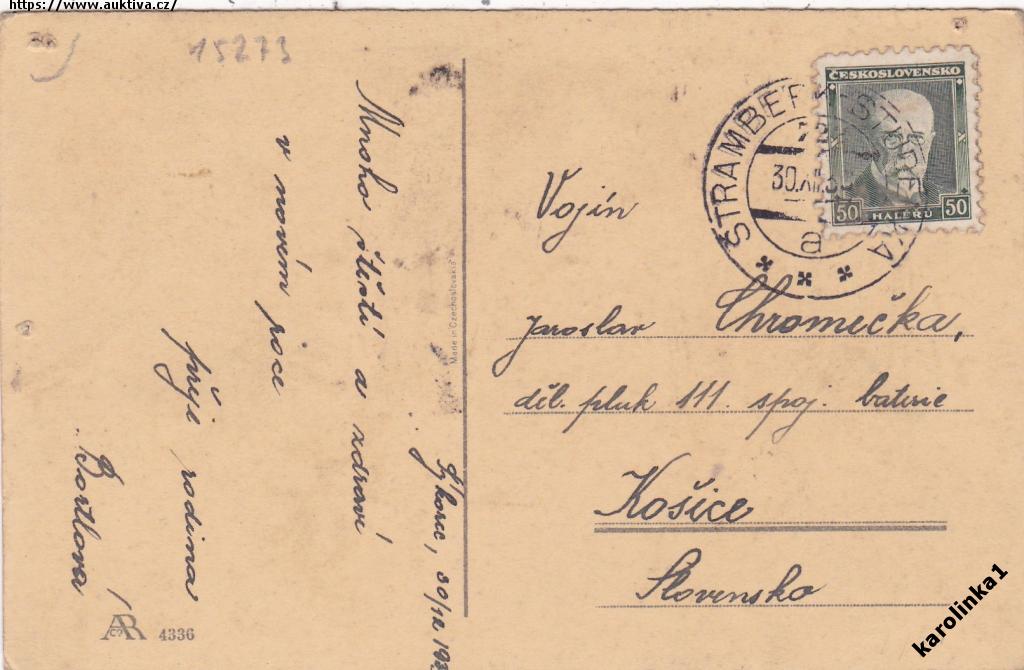 https://www.auktiva.cz/
15273
Mnoho štěstí a zdraví
v novém roce
přeje rodina
Bortlova
30/12 193
Made in Czechoslovakia
ČESKOSLOVENSKO
50 HALÉŘŮ 50
ŠTRAMBERK
30.XII.3
a
Vojín
Jaroslav Chromečka,
děl. pluk 111. spoj. baterie
Košice
Slovensko
AR
4336
karolinka1